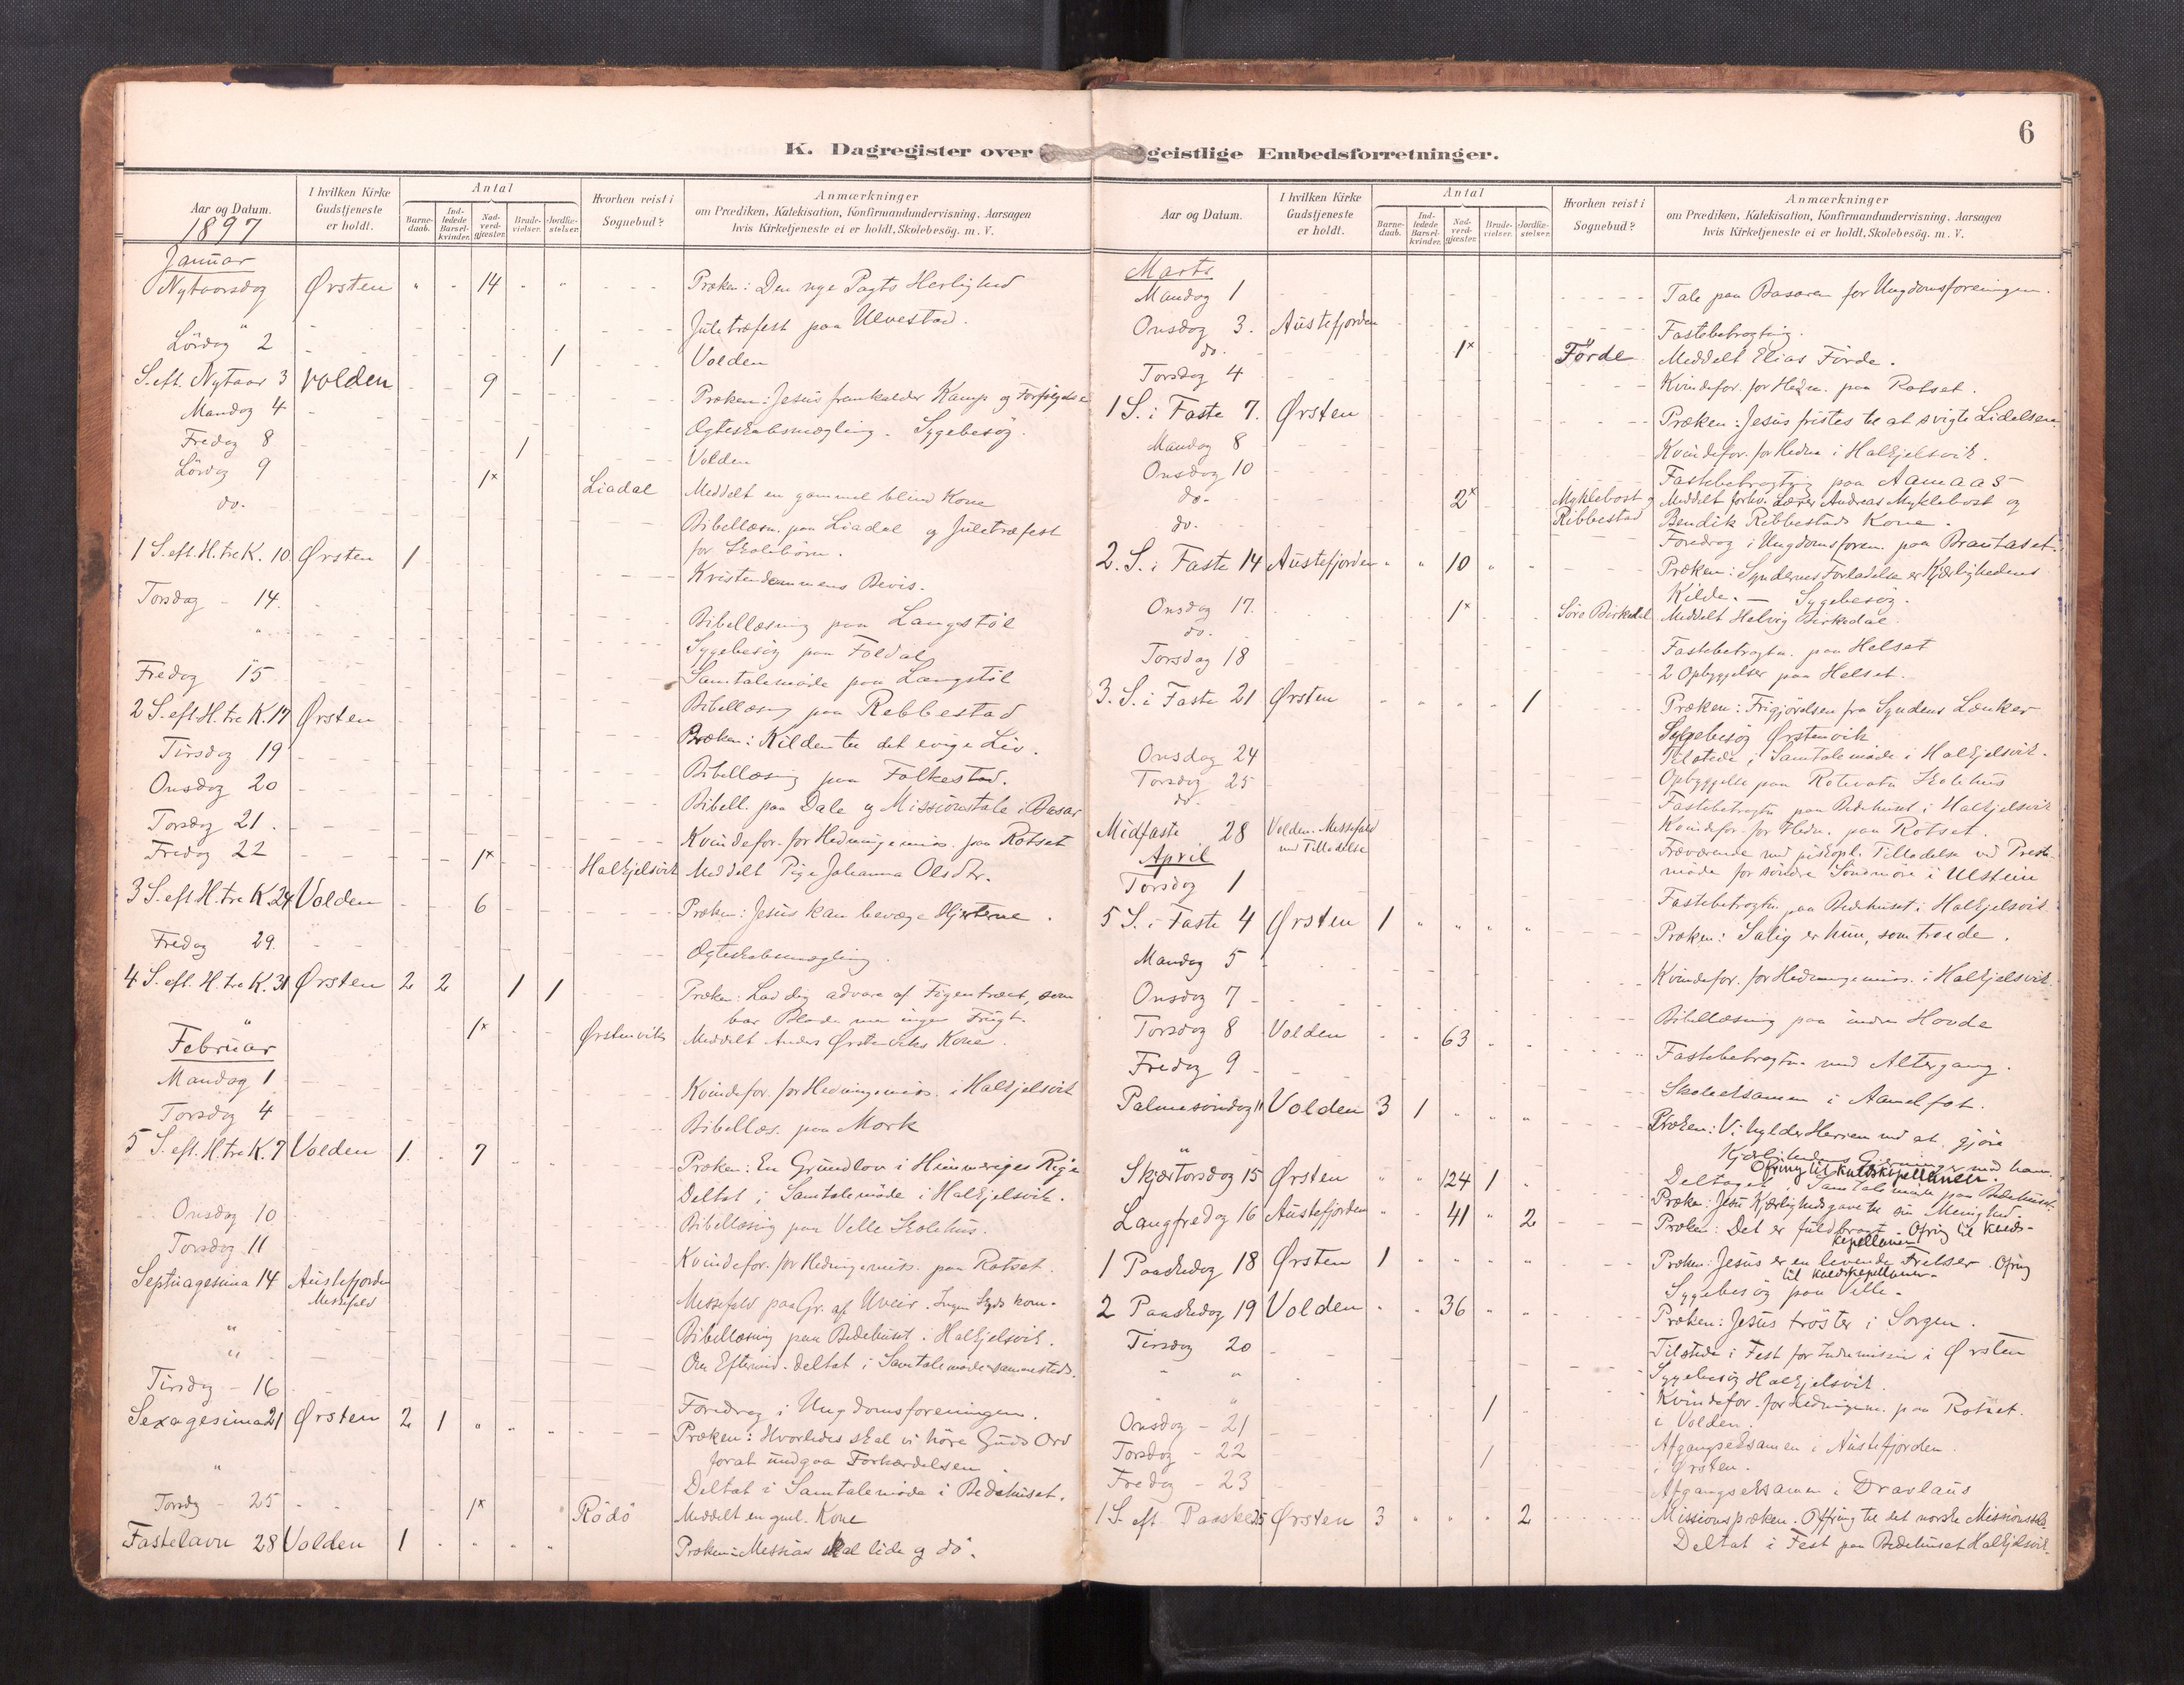 6
K. Dagregister over geistlige Embedsforretninger.
Aar og Datum. I hvilken Kirke Gudstjeneste er holdt. Antal Barne-daab. Ind-ledede Barsel-kvinder. Nad-verd-gjæster. Brude-vielser. Jordfæ-stelser. Hvorhen reist i Sognebud? Anmærkninger om Prædiken, Katekisation, Konfirmandundervisning, Aarsagen hvis Kirketjeneste ei er holdt, Skolebesøg. m. V.
1897
Januar
Nytaarsdag Ørsten " - 14 - " Præken: Den nye Pagts Herlighed
Juletræfest paa Ulvestad.
Lördag " 2 1 Volden
S. eft. Nytaar 3 Volden 9 Præken: Jesus fremkalder Kamp og Forfølgelse
Mandag 4 Ægteskabsmægling. Sygebesög.
Fredag 8 1 Volden
Lördag 9 1x Liadal Meddelt en gammel blind Kone
do. Bibellæsn. paa Liadal og Juletræfest
for Skolebörn.
1 S. eft. H. tre K. 10 Ørsten 1 Kristendommens Bevis.
Torsdag - 14. Bibellæsning paa Langstöl
" Sygebesög paa Foldal
Fredag 15 Samtalemöde paa Langstöl
Bibellæsng paa Rebbestad
2 S. eft. H. tre K. 17 Ørsten Præken: Kilden til det evige Liv.
Tirsdag 19 Bibellæsning paa Folkestad.
Onsdag 20 Bibell. paa Dale og Missionstale i Basar
Torsdag 21. Kvindefor. for Hedningemis. paa Rotset
Fredag 22 1x Halkjelsvik Meddelt Pige Johanna Olsdtr.
3 S. eft H. tre K. 24 Volden 6 Præken: Jesus kan bevæge Hjerterne.
Fredag 29. Ægteskabsmægling.
4 S. eft. H. tre K. 31 Ørsten 2 2 1 1 Præken: Lad dig advare af Figentræet, som
bar Blade men ingen Frugt.
" 1x Ørstenvik Meddelt Anders Ørstenviks Kone.
Februar
Mandag 1 Kvindefor. for Hedningemis. i Halkjelsvik
Torsdag 4 Bibellæs. paa Mork
5 S. eft. H. tre K. 7 Volden 1 - 7 Præken: En Grundlov i Himmeriges Rige
Deltat i Samtalemöde i Halkjelsvik.
Onsdag 10 Bibellæsng paa Velle Skolehus.
Torsdag 11 Kvindefor. for Hedningemiss. paa Rotset.
Septuagesima 14 Austefjorden Messefald Messefald paa Gr. af Uveir. Ingen Syds kom.
" Bibellæsning paa Bedehuset i Halkjelsvik.
" Om Eftermid. deltat i Samtalemöde sammesteds.
Tirsdag - 16 Foredrag i Ungdomsforeningen.
Sexagesima 21 Ørsten 2 1 " " " Præken: Hvorledes skal vi höre Guds Ord
forat undgaa Forhærdelsen
" Deltat i Samtalemöde i Bedehuset.
Torsdg - 25 1x Rödö Meddelt en gml. Kone
Fastelavn 28 Volden 1 " " " " Præken: Messias skal lide og dö.
Aar og Datum. I hvilken Kirke Gudstjeneste er holdt. Antal Barne-daab. Ind-ledede Barsel-kvinder. Nad-verd-gjæster. Brude-vielser. Jordfæ-stelser. Hvorhen reist i Sognebud? Anmærkninger om Prædiken, Katekisation, Konfirmandundervisning, Aarsagen hvis Kirketjeneste ei er holdt, Skolebesøg. m. V.
Marts
Mandag 1 Tale paa Basaren for Ungdomsforeningen.
Onsdag 3. Austefjorden Fastebetragtng.
do. 1x Förde Meddelt Elias Förde.
Torsdag 4 Kvindefor. for Hedn. paa Rotset.
1 S. i Faste 7. Ørsten Præken: Jesus fristes til at svigte Lidelsen.
Mandag 8 Kvindefor. for Hedn. i Halkjelsvik.
Onsdag 10 Fastebetragtng paa Aamaas
do. 2x Myklebost og Ribbestad Meddelt forhv. Lærer Andreas Myklebost og
Bendik Ribbestads Kone.
do. Foredrag i Ungdomsforen. paa Brautaset.
2. S. i Faste 14 Austefjorden " " 10 " " Præken: Syndernes Forladelse er Kjærlighedens
Kilde. — Sygebesög.
Onsdag 17. 1x Søre Birkedal Meddelt Helvig Birkedal.
do. Fastebetragtn. paa Helset
Torsdag 18 2 Opbyggelser paa Helset.
3. S. i Faste 21 Ørsten 1 Præken: Frigjörelsen fra Syndens Lænker
Sygebesög Ørstenvik
Tilstede i Samtalemöde i Halkjelsvik.
Onsdag 24 Opbyggelse paa Rotevatn Skolehus
Torsdag 25 Fastebetragtn paa Bedehuset i Halkjelsvik
do. Kvindefor. for Hedn. paa Rotset.
Midfaste 28 Volden. Messefald med Tilladelse Fraværende med biskopl. Tilladelse ved Preste-
möde for söndre Söndmöre i Ulstein
April
Torsdag 1 Fastebetragtn. paa Bedehuset i Halkjelsvik
5 S. i Faste 4 Ørsten 1 " " " " Præken: Salig er hun, som troede.
Mandag 5 Kvindefor. for Hedningemis. i Halkjelsvik.
Onsdag 7 Bibellæsning paa indre Hovde
Torsdag 8 Volden 63 Fastebetragtn. med Altergang.
Fredag 9 Skoleeksamen i Aamelfot.
Palmesöndag 11 Volden 3 1 " " " Præken: Vi hylder Herren ved at gjöre
Kjærlighedens Gjerninger mod ham.
Ofring til kaldskapellanen.
" Deltaget i Samtalemöde paa Bedehuset.
Skjærtorsdag 15 Ørsten " " 124 1 Præken: Jesu Kjærlighedsgave til sin Menighed.
Langfredag 16 Austefjorden " " 41 " 2 Præken: Det er fuldbragt. Ofring til kalds-
kapellanen
1 Paaskedag 18 Ørsten 1 " " " " Præken: Jesus er en levende Frelser. Ofring
til kaldskapellanen.
Sygebesög paa Velle.
2 Paaskedag 19 Volden " " 36 " " Præken: Jesus tröster i Sorgen.
Tirsdag 20 Tilstede i Fest for Indremission i Ørsten
" Sygebesög Halkjelsvik.
" Kvindefor. for Hedningem. paa Rotset.
Onsdag - 21 1 i Volden.
Torsdag - 22 Afgangseksamen i Austefjorden.
1 i Ørsten.
Fredag - 23 Afgangseksamen i Dravlaus
1 S. eft. Paaske 25 Ørsten 3 " " " 2 Missionspræken. Offring til det norske Missionssels.
Deltat i Fest paa Bedehuset Halkjelsvik.